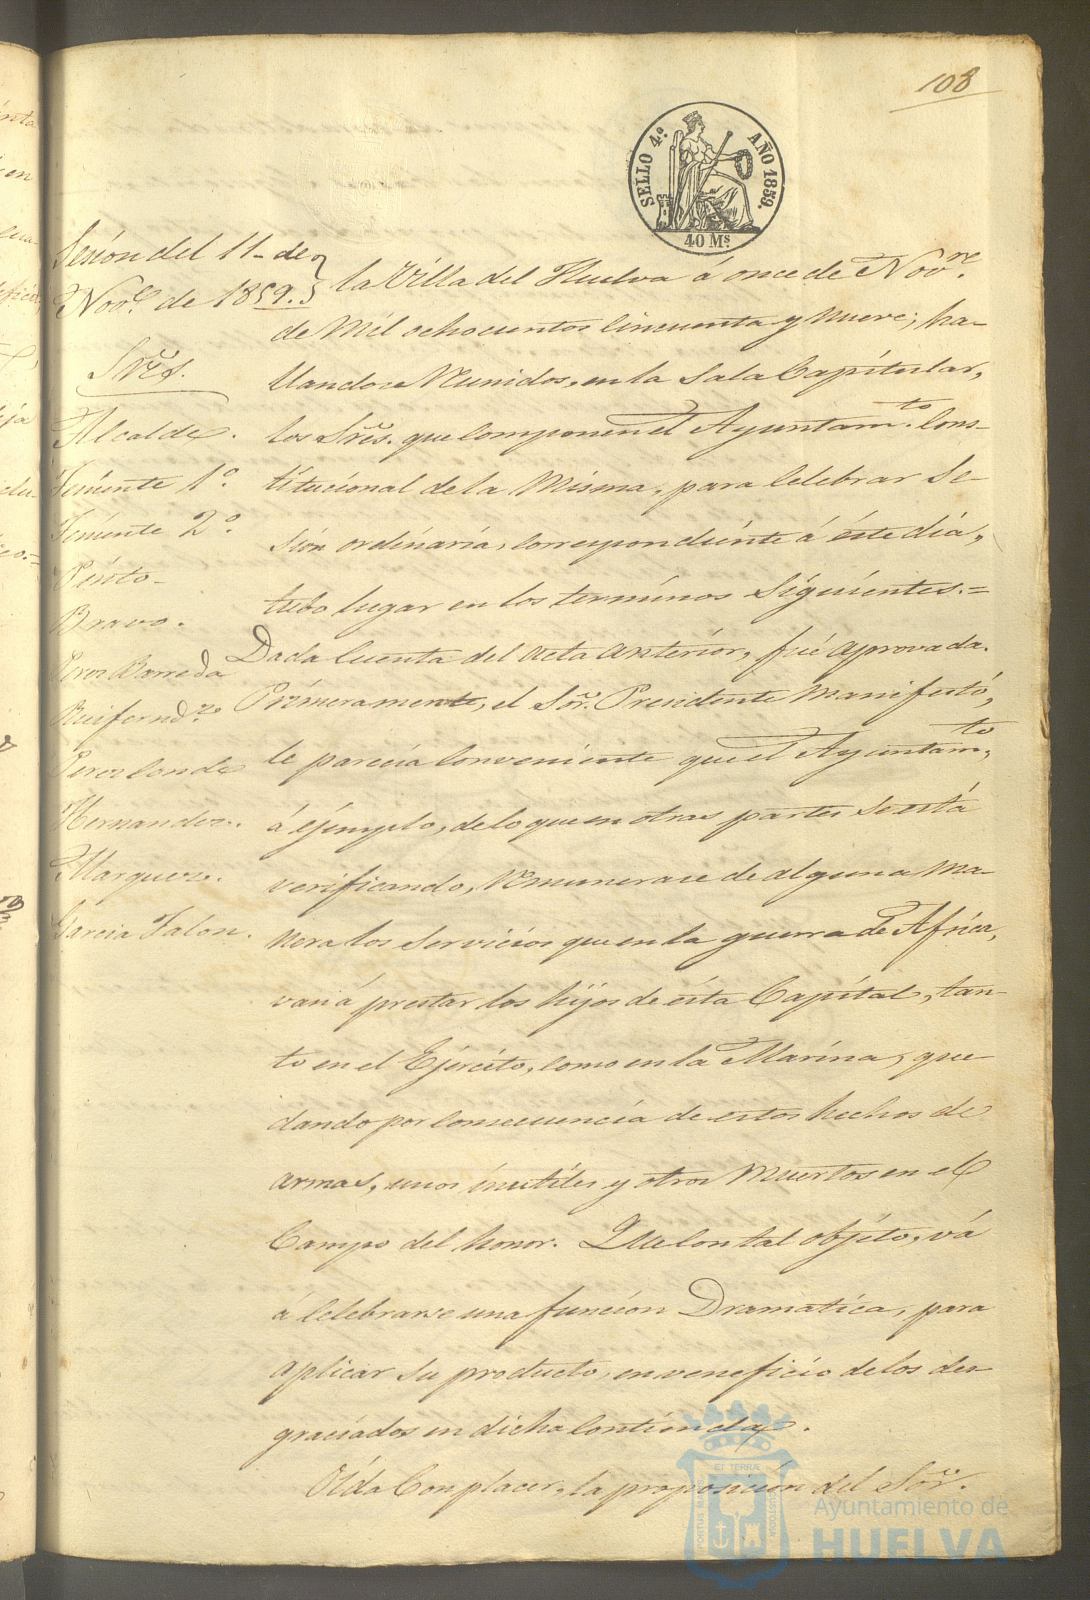 108
SELLO 4.º AÑO 1859.
40 Ms
Sesión del 11 de
Nov.e de 1859.
Sres.
Alcalde.
Teniente 1º.
Teniente 2º.
Peinto-
Bravo.
Perez Barreda
Ruifernd.z
Perez Conde
Hernandez.
Marquez.
Garcia Jalon.
la Villa del Huelva á once de Nov.re
de Mil ochocientos Cincuenta y Nueve; ha-
llandose Reunidos, en la Sala Capítular,
los Sres. que componen el Ayuntam.to Cons-
titucional de la Misma, para Celebrar Se-
sión ordinaria, correspondiente á éste día,
tubo lugar en los términos Siguientes.=
Dada Cuenta del acta anterior, fué aprovada.
Primeramente, el Sor. Presidente Manifestó,
le parecia Conveniente que el Ayuntam.to,
á ejemplo, de lo que en otras partes se está
verificando, Remunerase de alguna Ma-
nera los Servicios que en la guerra de Africa,
van á prestar los hijos de ésta Capítal, tan-
to en el Ejército, como en la Marina, que
dando por Consecuencia de estos hechos de
armas, unos inutiles y otros Muertos en el
Campo del honor. Que con tal objeto, vá
á Celebrarse una función Dramatica, para
aplicar su producto, en veneficio de los des-
graciados en dicha Contienda.
Oída Con placer, la proposición del Sor.
PORTUS MARIS ET TERRAE CUSTODIA
Ayuntamiento de
HUELVA